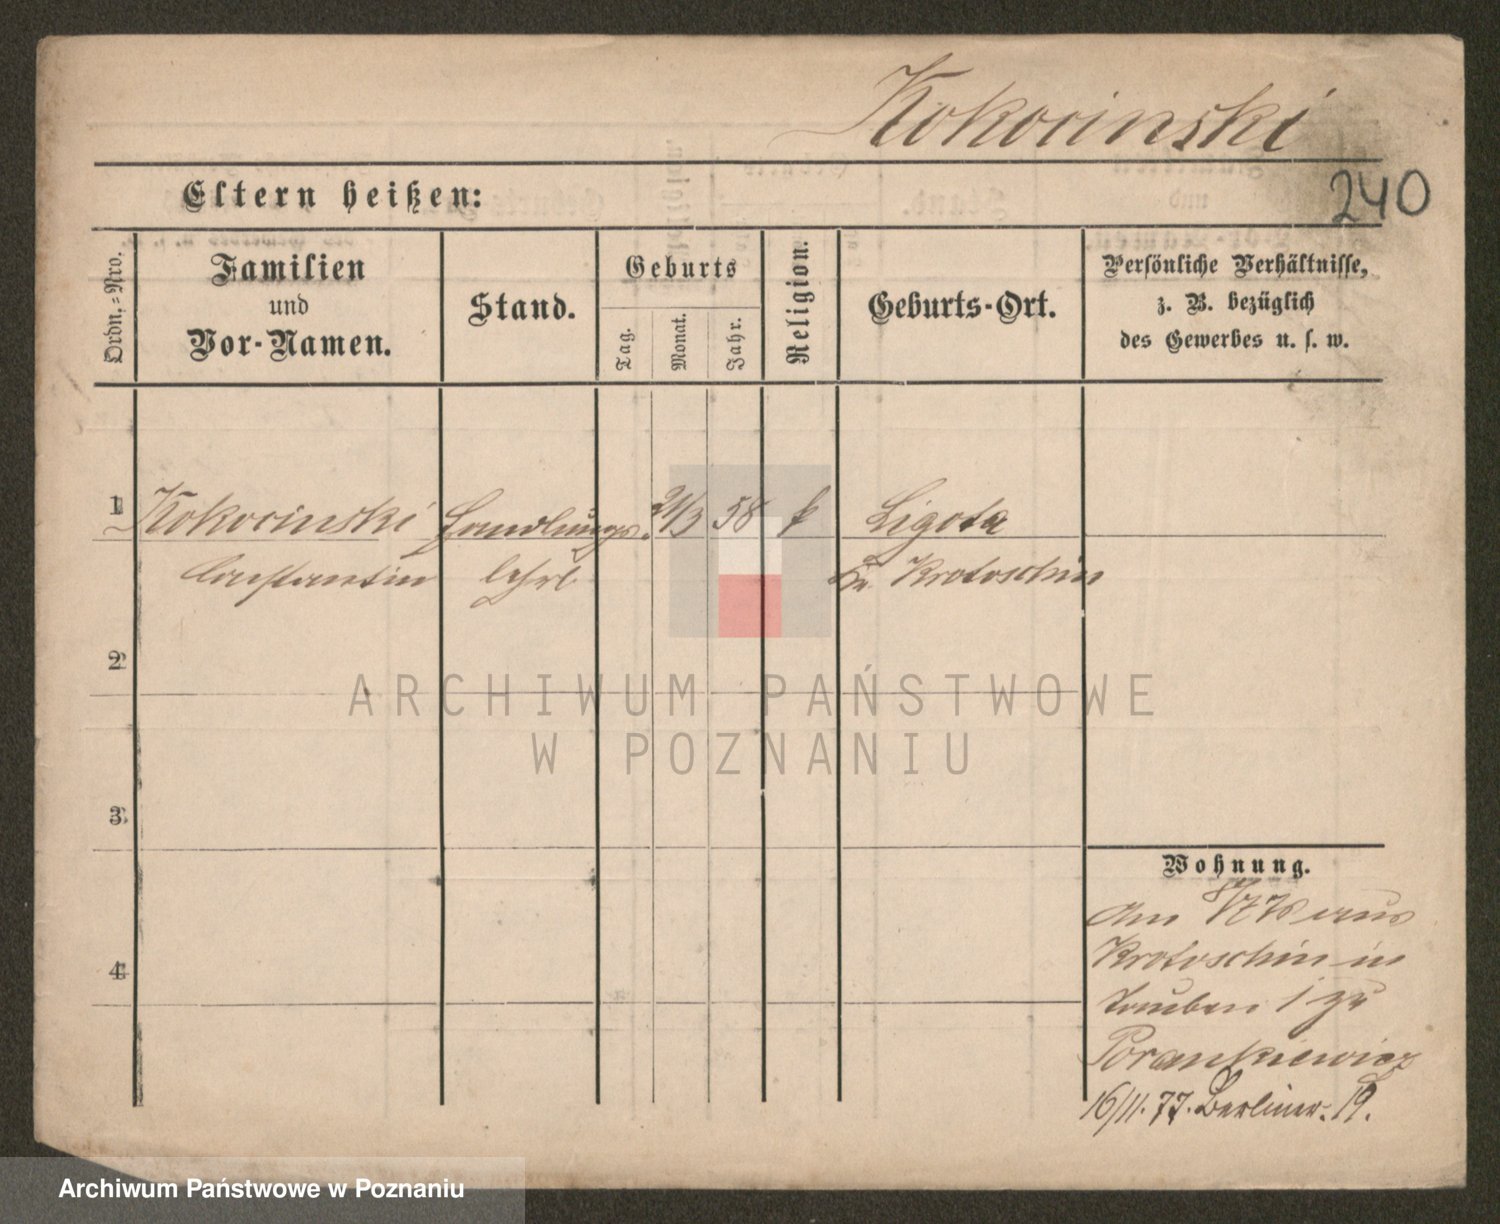 Kokocinski
Eltern heißen:
240
Ordn.-Nro.
Familien
und
Vor-Namen.
Stand.
Geburts
Tag.
Monat.
Jahr.
Religion.
Geburts-Ort.
Persönliche Verhältnisse,
z. B. bezüglich
des Gewerbes u. s. w.
1 Kokocinski Handlungs- 21/3 58 k Ligota
Constantin lehrl Kr. Krotoschin
2
3
4
Wohnung.
Am aus
Krotoschin in
Tauben 1 zu
Porankiewicz
16/11. 77. Berliner. 19.
ARCHIWUM PAŃSTWOWE
W POZNANIU
Archiwum Państwowe w Poznaniu